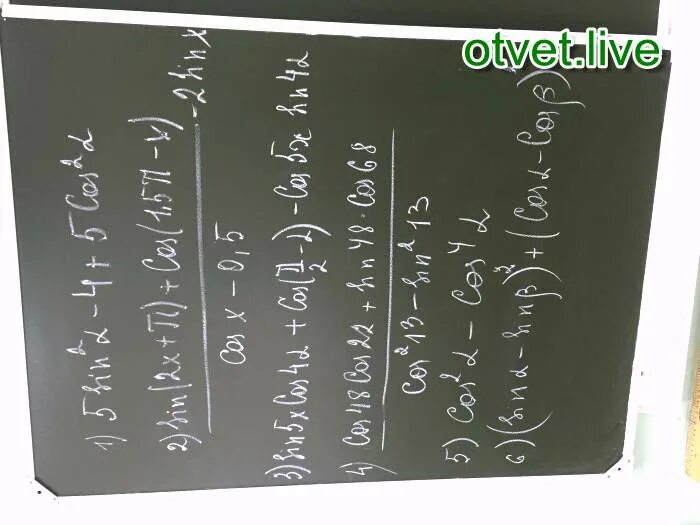 otvet.live
1) 5 sin²α - 4 + 5 cos²α
2) sin(2x+π) + cos(1,5π - x)
cos x - 0,5
- 2 sin x
3) sin 5x cos 4α + cos(π/2 - α) - cos 5x sin 4α
4) cos 48 cos 22 + sin 48 · cos 68
cos² 13 - sin² 13
5) cos²α - cos⁴α
6) (sin α - sin β)² + (cos α - cos β)²